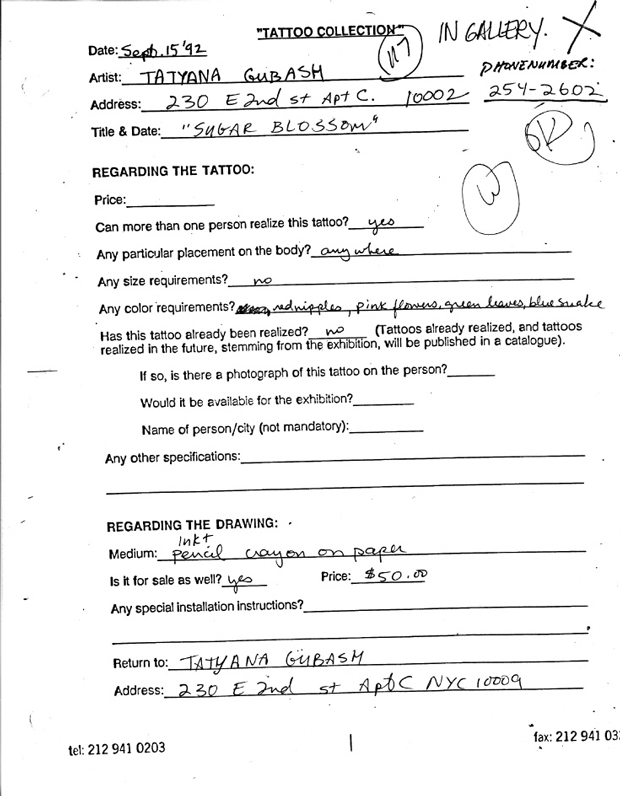 "TATTOO COLLECTION"
IN GALLERY. X
Date: Sept. 15 '92
117
PHONENUMBER:
Artist: TATYANA GUBASH
254-2602
Address: 230 E 2nd st Apt C. 10002
Title & Date: "SUGAR BLOSSOM"
OK
W
REGARDING THE TATTOO:
Price:
Can more than one person realize this tattoo? yes
Any particular placement on the body? anywhere
Any size requirements? no
Any color requirements? red nipples, pink flowers, green leaves, blue snake
Has this tattoo already been realized? no (Tattoos already realized, and tattoos
realized in the future, stemming from the exhibition, will be published in a catalogue).
If so, is there a photograph of this tattoo on the person?
Would it be available for the exhibition?
Name of person/city (not mandatory):
Any other specifications:
REGARDING THE DRAWING:
Ink +
Medium: pencil crayon on paper
Is it for sale as well? yes Price: $50.00
Any special installation instructions?
Return to: TATYANA GUBASH
Address: 230 E 2nd st Apt C NYC 10009
tel: 212 941 0203
fax: 212 941 03